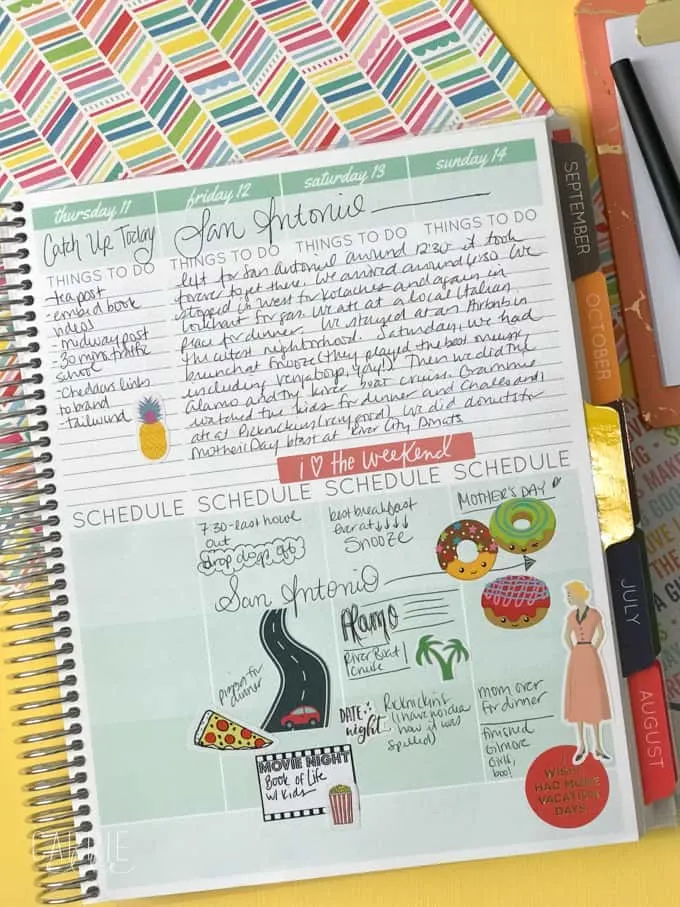 thursday 11
friday 12
saturday 13
sunday 14
Catch Up Today
San Antonio
THINGS TO DO
THINGS TO DO
THINGS TO DO
THINGS TO DO
- tea post
- embed book
videos
- midway post
- 30 mins traffic
school
- Cheddars links
to brand
- tailwind
left for San Antonio around 12:30 it took
forever to get there. We arrived around 6:30 We
stopped in West for kolaches and again in
for gas. We ate at a local Italian
place for dinner. We stayed at an Airbnb in
the cutest neighborhood. Saturday, we had
brunch at Snooze (they played the best music
including Vengaboys, yay!) Then we did the
Alamo and the river boat cruise. Grammie
watched the kids for dinner and Charles and I
ate at Picknickins (very good). We did donuts for
Mother's Day bfast at River City Donuts.
i ♡ the weekend
SCHEDULE
SCHEDULE
SCHEDULE
SCHEDULE
7:30-last howl
out
drop dogs off
best breakfast
ever at ↓↓↓↓
Snooze
MOTHER'S DAY
San Antonio
Alamo
River Boat
Cruise
pizza for
dinner
DATE
night
Picknickins
(I have no idea
how it was
spelled)
mom over
for dinner
finished
Gilmore
Girls,
boo!
MOVIE NIGHT
Book of Life
w/ Kids
WISH I
HAD MORE
VACATION
DAYS
SEPTEMBER
OCTOBER
JULY
AUGUST
CARRIE